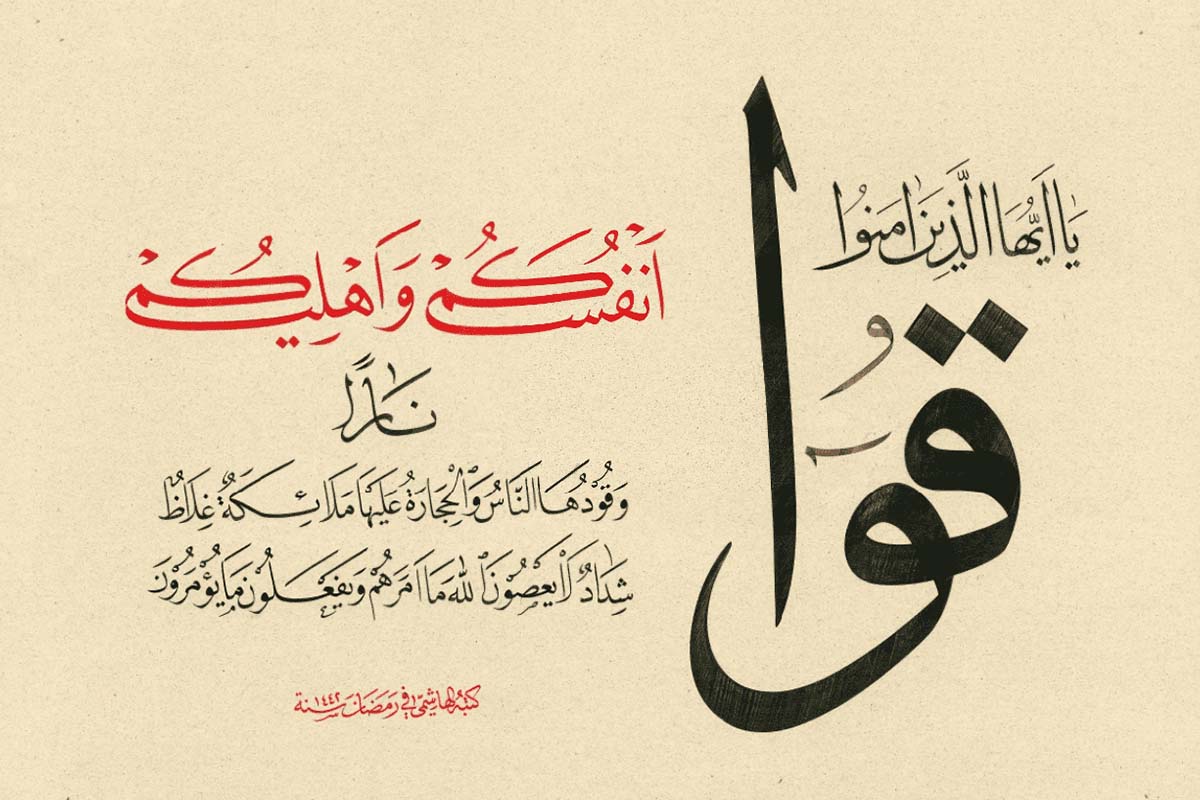 يَا اَيُّهَا الَّذِينَ اٰمَنُوا
قُوا
اَنْفُسَكُمْ وَاَهْلِيكُمْ
نَارًا
وَقُودُهَا النَّاسُ وَالْحِجَارَةُ عَلَيْهَا مَلَائِكَةٌ غِلَاظٌ
شِدَادٌ لَا يَعْصُونَ اللّٰهَ مَا اَمَرَهُمْ وَيَفْعَلُونَ مَا يُؤْمَرُونَ
كتبه الهاشمي في رمضان سنة ١٤٤٢